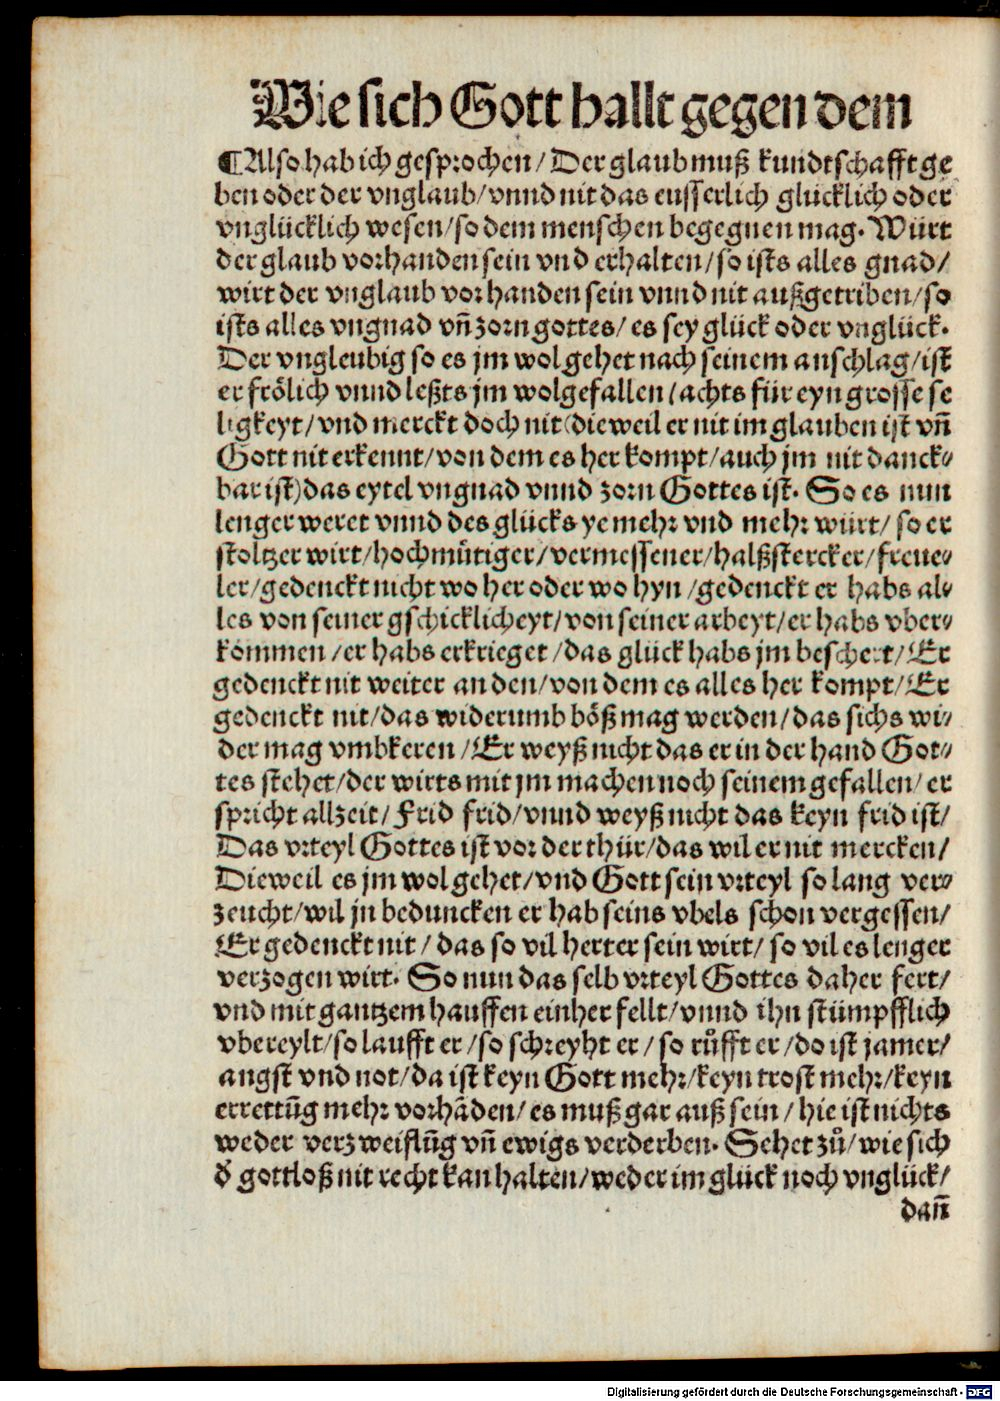 Wie sich Gott hallt gegen dem
¶Also hab ich gesprochen/ Der glaub muß kundtschafft ge
ben oder der vnglaub/ vnnd nit das eusserlich glücklich oder
vnglücklich wesen/ so dem menschen begegnen mag. Würt
der glaub vorhanden sein vnd erhalten/ so ists alles gnad/
wirt der vnglaub vorhanden sein vnnd nit außgetriben/ so
ists alles vngnad vñ zorn gottes/ es sey glück oder vnglück.
Der vngleubig so es jm wol gehet nach seinem anschlag/ ist
er frölich vnnd leßts jm wolgefallen/ achts für eyn grosse se
ligkeyt/ vnd merckt doch nit (dieweil er nit im glauben ist vñ
Gott nit erkennt/ von dem es her kompt/ auch jm nit danck⸗
bar ist) das eytel vngnad vnnd zorn Gottes ist. So es nun
lenger weret vnnd des glücks ye mehr vnd mehr würt/ so er
stoltzer wirt/ hochmůtiger/ vermessener/ halßstercker/ freue⸗
ler/ gedenckt nicht wo her oder wo hyn/ gedenckt er habs al⸗
les von seiner gschicklicheyt/ von seiner arbeyt/ er habs vber⸗
kommen/ er habs erkrieget/ das glück habs jm beschert/ Er
gedenckt nit weiter an den/ von dem es alles her kompt/ Er
gedenckt nit/ das widerumb böß mag werden/ das sichs wi⸗
der mag vmbkeren/ Er weyß nicht das er in der hand Got⸗
tes stehet/ der wirts mit jm machen noch seinem gefallen/ er
spricht allzeit/ Frid frid/ vnnd weyß nicht das keyn frid ist/
Das vrteyl Gottes ist vor der thür/ das wil er nit mercken/
Dieweil es jm wol gehet/ vnd Gott sein vrteyl so lang ver⸗
zeucht/ wil jn beduncken er hab seins vbels schon vergessen/
Er gedenckt nit/ das so vil herter sein wirt/ so vil es lenger
verzogen wirt. So nun das selb vrteyl Gottes daher fert/
vnd mit gantzem hauffen einher fellt/ vnnd ihn stümpfflich
vbereylt/ so laufft er/ so schreyht er/ so růfft er/ do ist jamer/
angst vnd not/ da ist keyn Gott mehr/ keyn trost mehr/ keyn
errettũg mehr vorhãden/ es muß gar auß sein/ hie ist nichts
weder verzweiflũg vñ ewigs verderben. Sehet zů/ wie sich
d' gottloß nit recht kan halten/ weder im glück noch vnglück/
dañ
Digitalisierung gefördert durch die Deutsche Forschungsgemeinschaft - DFG